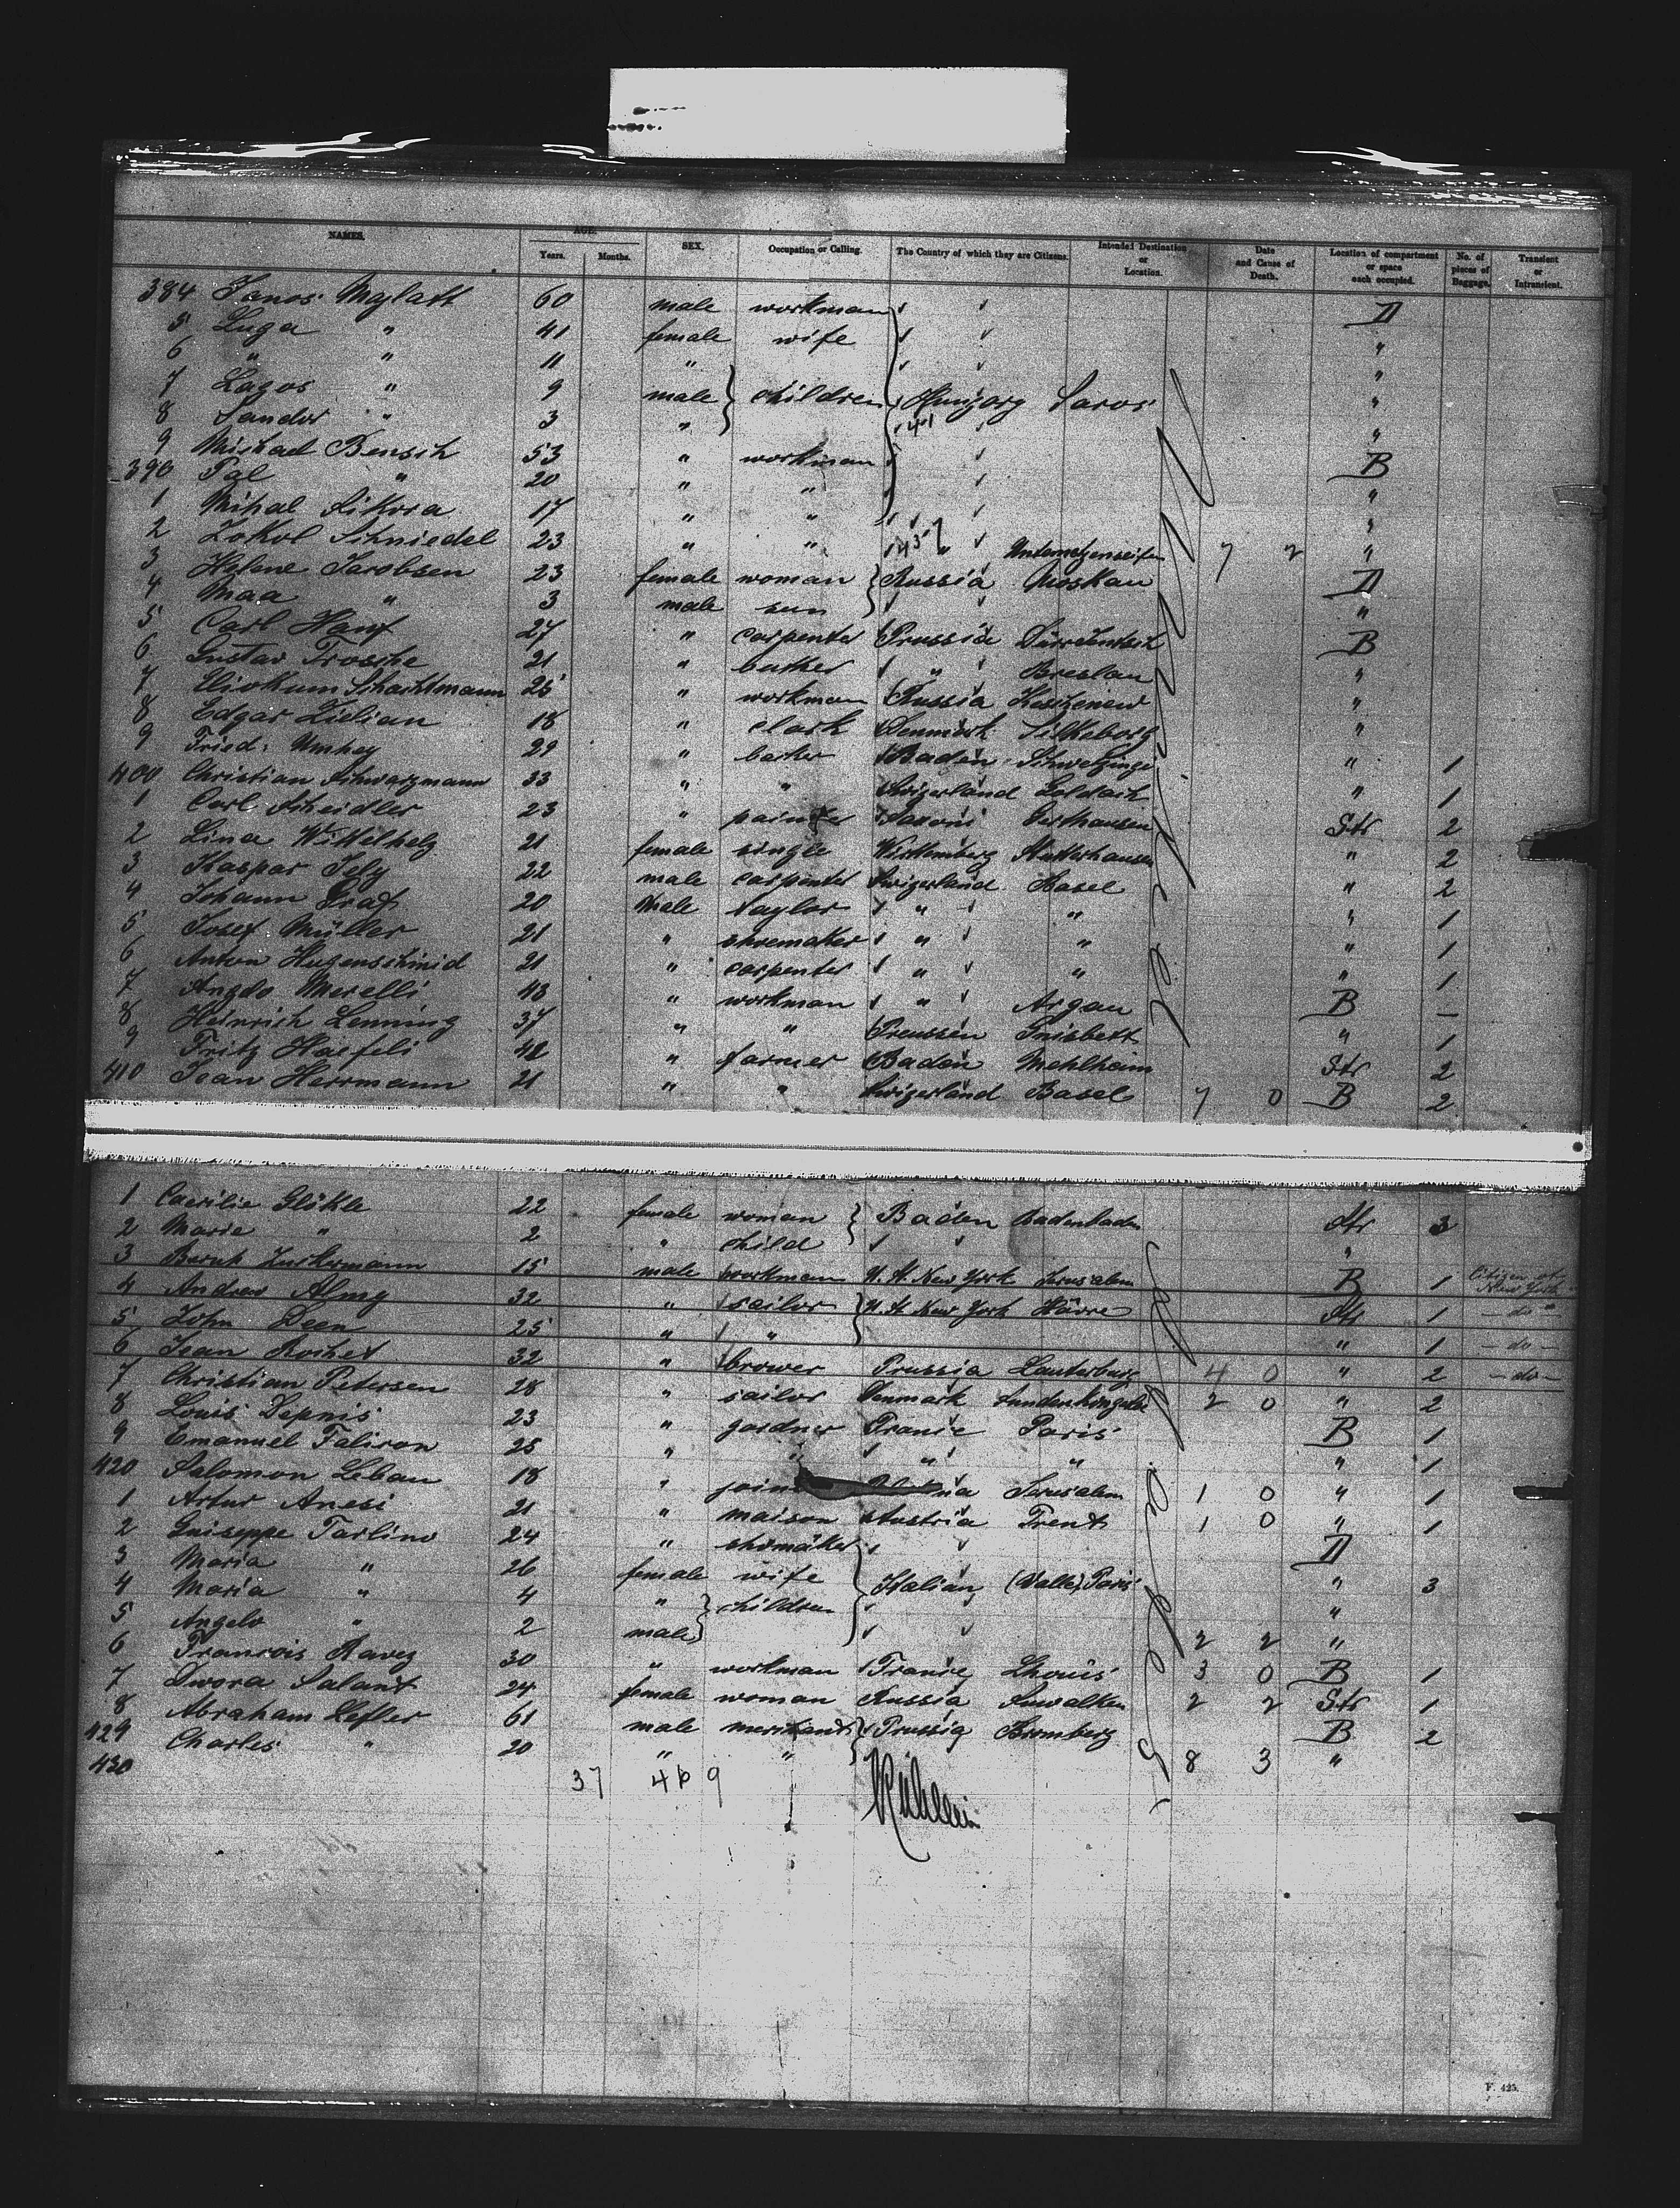 NAMES. AGE. SEX. Occupation or Calling. The Country of which they are Citizens. Intended Destination or Location. Date and Cause of Death. Location of compartment or space each occupied. No. of pieces of Baggage. Transient or Intransient.
Years. Months.
384 Janos Maylatt 60 male workman D
5 Luga " 41 female wife "
6 " " 11 " "
7 Lagos " 9 male children Hungary Saros "
8 Sandor " 3 " "
9 Michael Bensih 53 " workman B
390 Pal " 20 " " "
1 Mihal Sikora 17 " " "
2 Jokob Schniedel 23 " " " 7 2 "
3 Helene Jacobsen 23 female woman Russia Moskau D
4 Maa " 3 male son "
5 Carl Hanf 27 " carpenter Prussia B
6 Gustav Trosche 21 " " Breslau "
7 Schachtmann 25 " workman Russia "
8 Edgar Zielian 18 " clark Denmark Silkeborg "
9 Fried. Umhey 29 " Baden Schwetzinge " 1
400 Christian Schwarzmann 33 " " Swizerland Goldach " 1
1 Carl Scheidler 23 " painter Saxoni Str 2
2 Lina 21 female single Wirttemberg " 2
3 Kaspar Jely 22 male carpenter Swizerland Basel " 2
4 Johann Graf 20 Male taylor " " " 1
5 Josef Müller 21 " shremaker " " " 1
6 Anton Hugenschmid 21 " carpenter " " " 1
7 Angelo Merelli 48 " workman " Argau B –
8 Heinrich Lenning 37 " " Preussen " 1
9 Fritz Haefeli 42 " farmer Baden Mehlheim Str 2
410 Jean Herrmann 21 " " Swizerland Basel 7 0 B 2
1 Caecilie Glökle 22 female woman Baden Badenbaden Str 3
2 Marie " 2 " child "
3 Baruh Zuckermann 15 male workman N. A. New York Jerusalem B 1 Citizen of New York
4 Andrew Almy 32 " sailor N. A. New York Hâvre Str 1 – do –
5 John Deen 25 " " " 1 – do –
6 Jean Rochet 32 " brower Prussia Lauterburg 4 0 " 2 – do –
7 Christian Petersen 28 " sailor Denmark 2 0 " 2
8 Louis Depnis 23 " gardner France Paris B 1
9 Emanuel Falison 25 " " " " " 1
420 Salomon Leban 18 " Jerusalem 1 0 " 1
1 Artur Anesi 21 " maison Austria Trent 1 0 " 1
2 Guiseppe Tarlino 24 " shomaker D
3 Maria " 26 female wife Italian (Valle) Paris " 3
4 Maria " 4 " children "
5 Angelo " 2 male 2 2 "
6 Francois Ravez 30 " workman France 3 0 B 1
7 Dwora Salant 24 female woman Russia Suwalken 2 2 Str 1
8 Abraham Lefler 61 male merchand Prussia Bromberg B 2
429 Charles " 20 " " 8 3 "
430
37 4 9
F. 425.